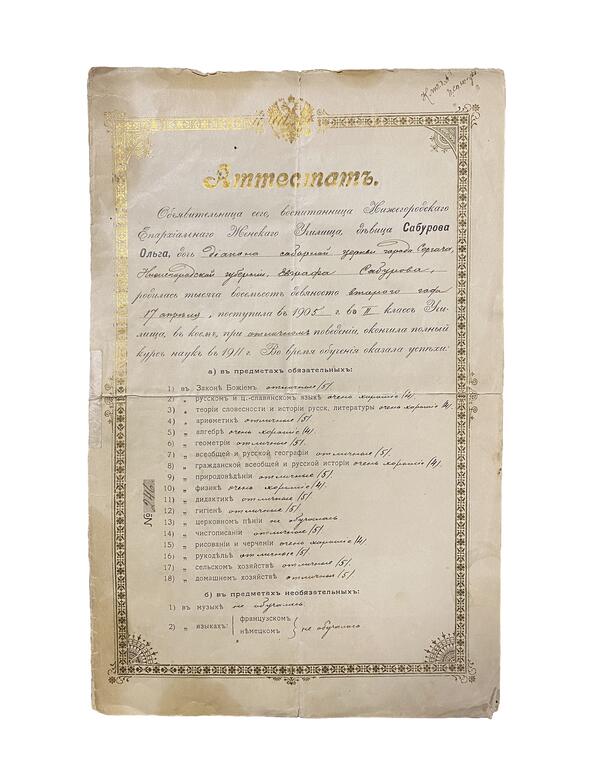 Аттестатъ.
Объявительница сего, воспитанница Нижегородскаго
Епархіальнаго Женскаго Училища, дѣвица Сабурова
Ольга, дочь діакона соборной церкви города Сергача,
Нижегородской губерніи, Евграфа Сабурова,
родилась тысяча восемьсотъ девяносто второго года
17 апрѣля, поступила въ 1905 г. въ II классъ Учи-
лища, въ коемъ, при отличномъ поведеніи, окончила полный
курсъ наукъ въ 1911 г. Во время обученія оказала успѣхи:
а) въ предметахъ обязательныхъ:
1) въ Законѣ Божіемъ отличные /5/.
2) „ русскомъ и ц.-славянскомъ языкѣ очень хорошіе /4/.
3) „ теоріи словесности и исторіи русск. литературы очень хорошіе /4/.
4) „ ариѳметикѣ отличные /5/.
5) „ алгебрѣ очень хорошіе /4/.
6) „ геометріи отличные /5/.
7) „ всеобщей и русской географіи отличные /5/.
8) „ гражданской всеобщей и русской исторіи очень хорошіе /4/.
9) „ природовѣдѣніи отличные /5/.
10) „ физикѣ очень хорошіе /4/.
11) „ дидактикѣ отличные /5/.
12) „ гигіенѣ отличные /5/.
13) „ церковномъ пѣніи не обучалась
14) „ чистописаніи отличные /5/.
15) „ рисованіи и черченіи очень хорошіе /4/.
16) „ рукодѣльѣ отличные /5/.
17) „ сельскомъ хозяйствѣ отличные /5/.
18) „ домашнемъ хозяйствѣ отличные /5/.
б) въ предметахъ необязательныхъ:
1) въ музыкѣ не обучалась.
2) „ языкахъ: французскомъ
нѣмецкомъ не обучалась
№ 246